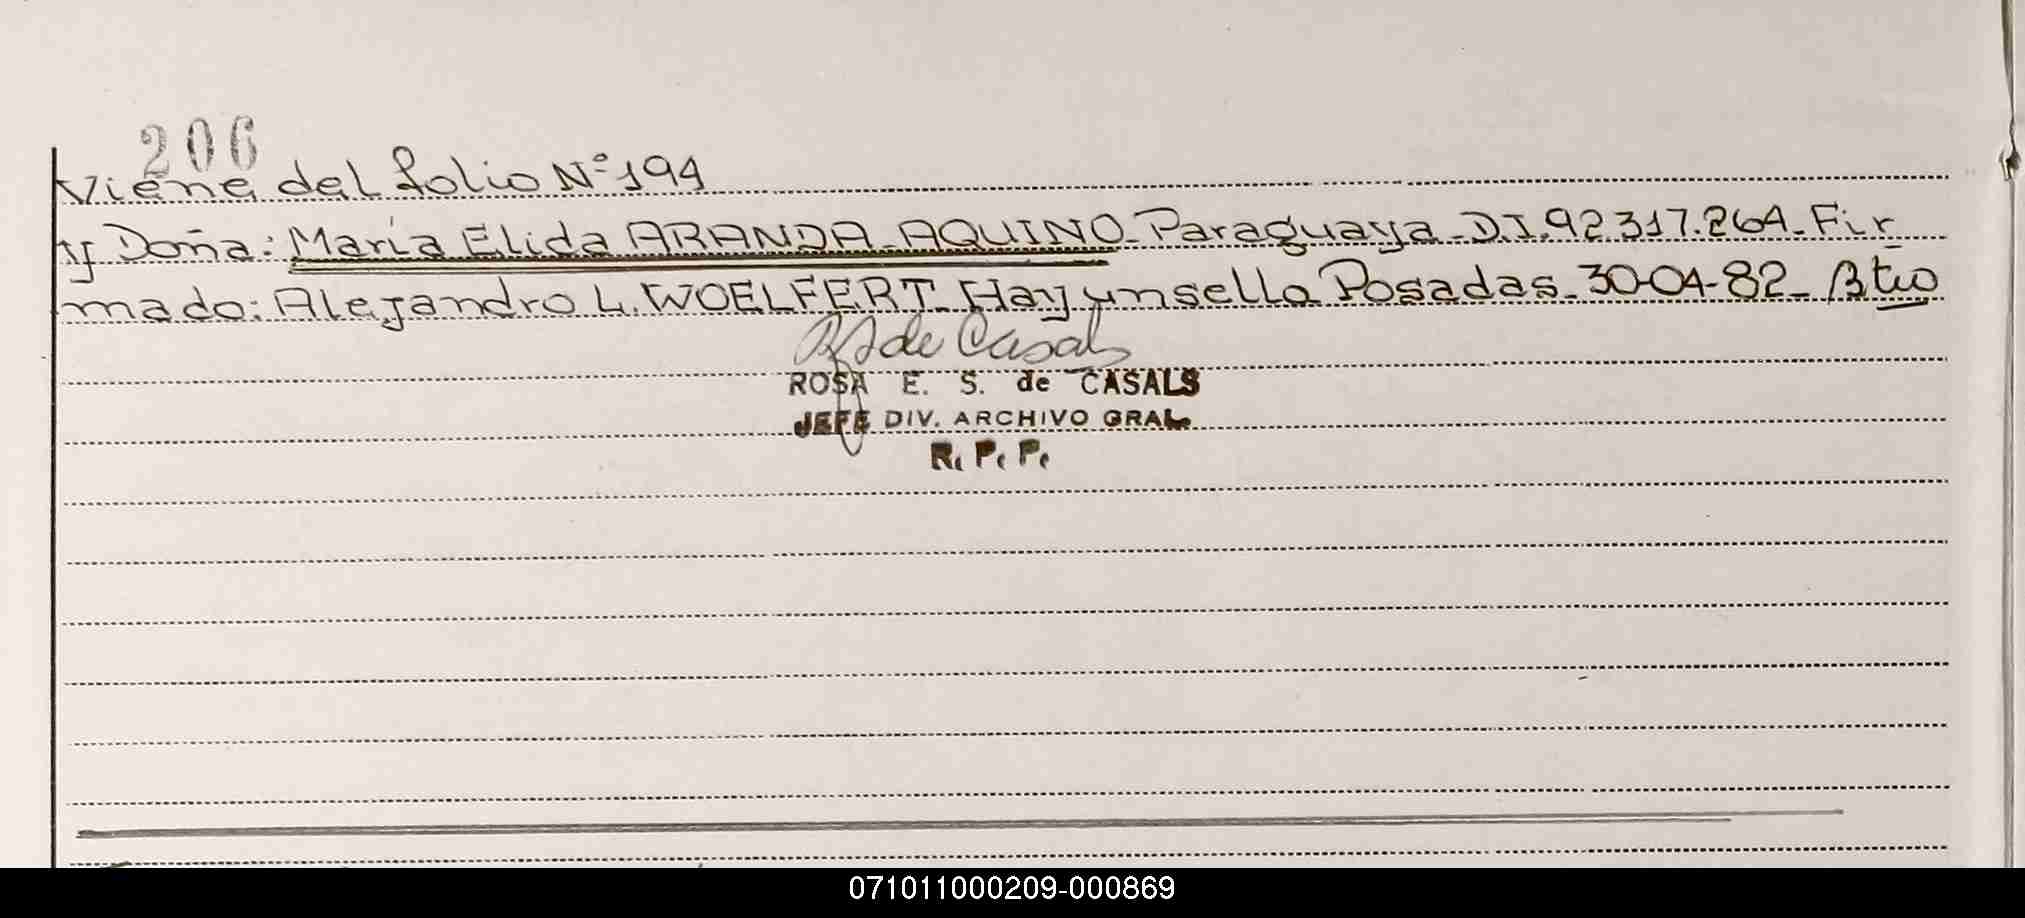 206
Viene del folio N° 194
y Doña: María Elida ARANDA-AQUINO-Paraguaya-D.I.92.317.264-Fir
mado: Alejandro L. WOELFERT-Hay un sello Posadas-30-04-82-Btio
R S de Casals
ROSA E. S. de CASALS
JEFE DIV. ARCHIVO GRAL.
R. P. P.
071011000209-000869